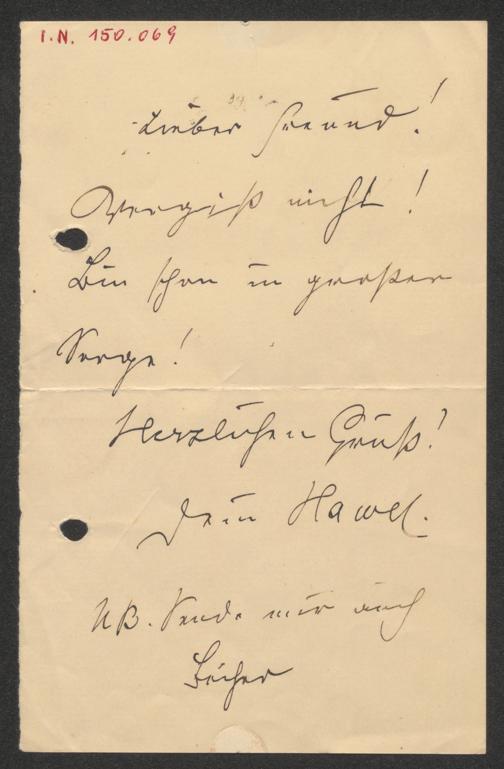 I.N. 150.069
Lieber Freund!
Vergiß nicht!
Bin schon in großer
Sorge!
Herzlichen Gruß!
Dein Hawel.
NB. Sende mir auch
Bücher